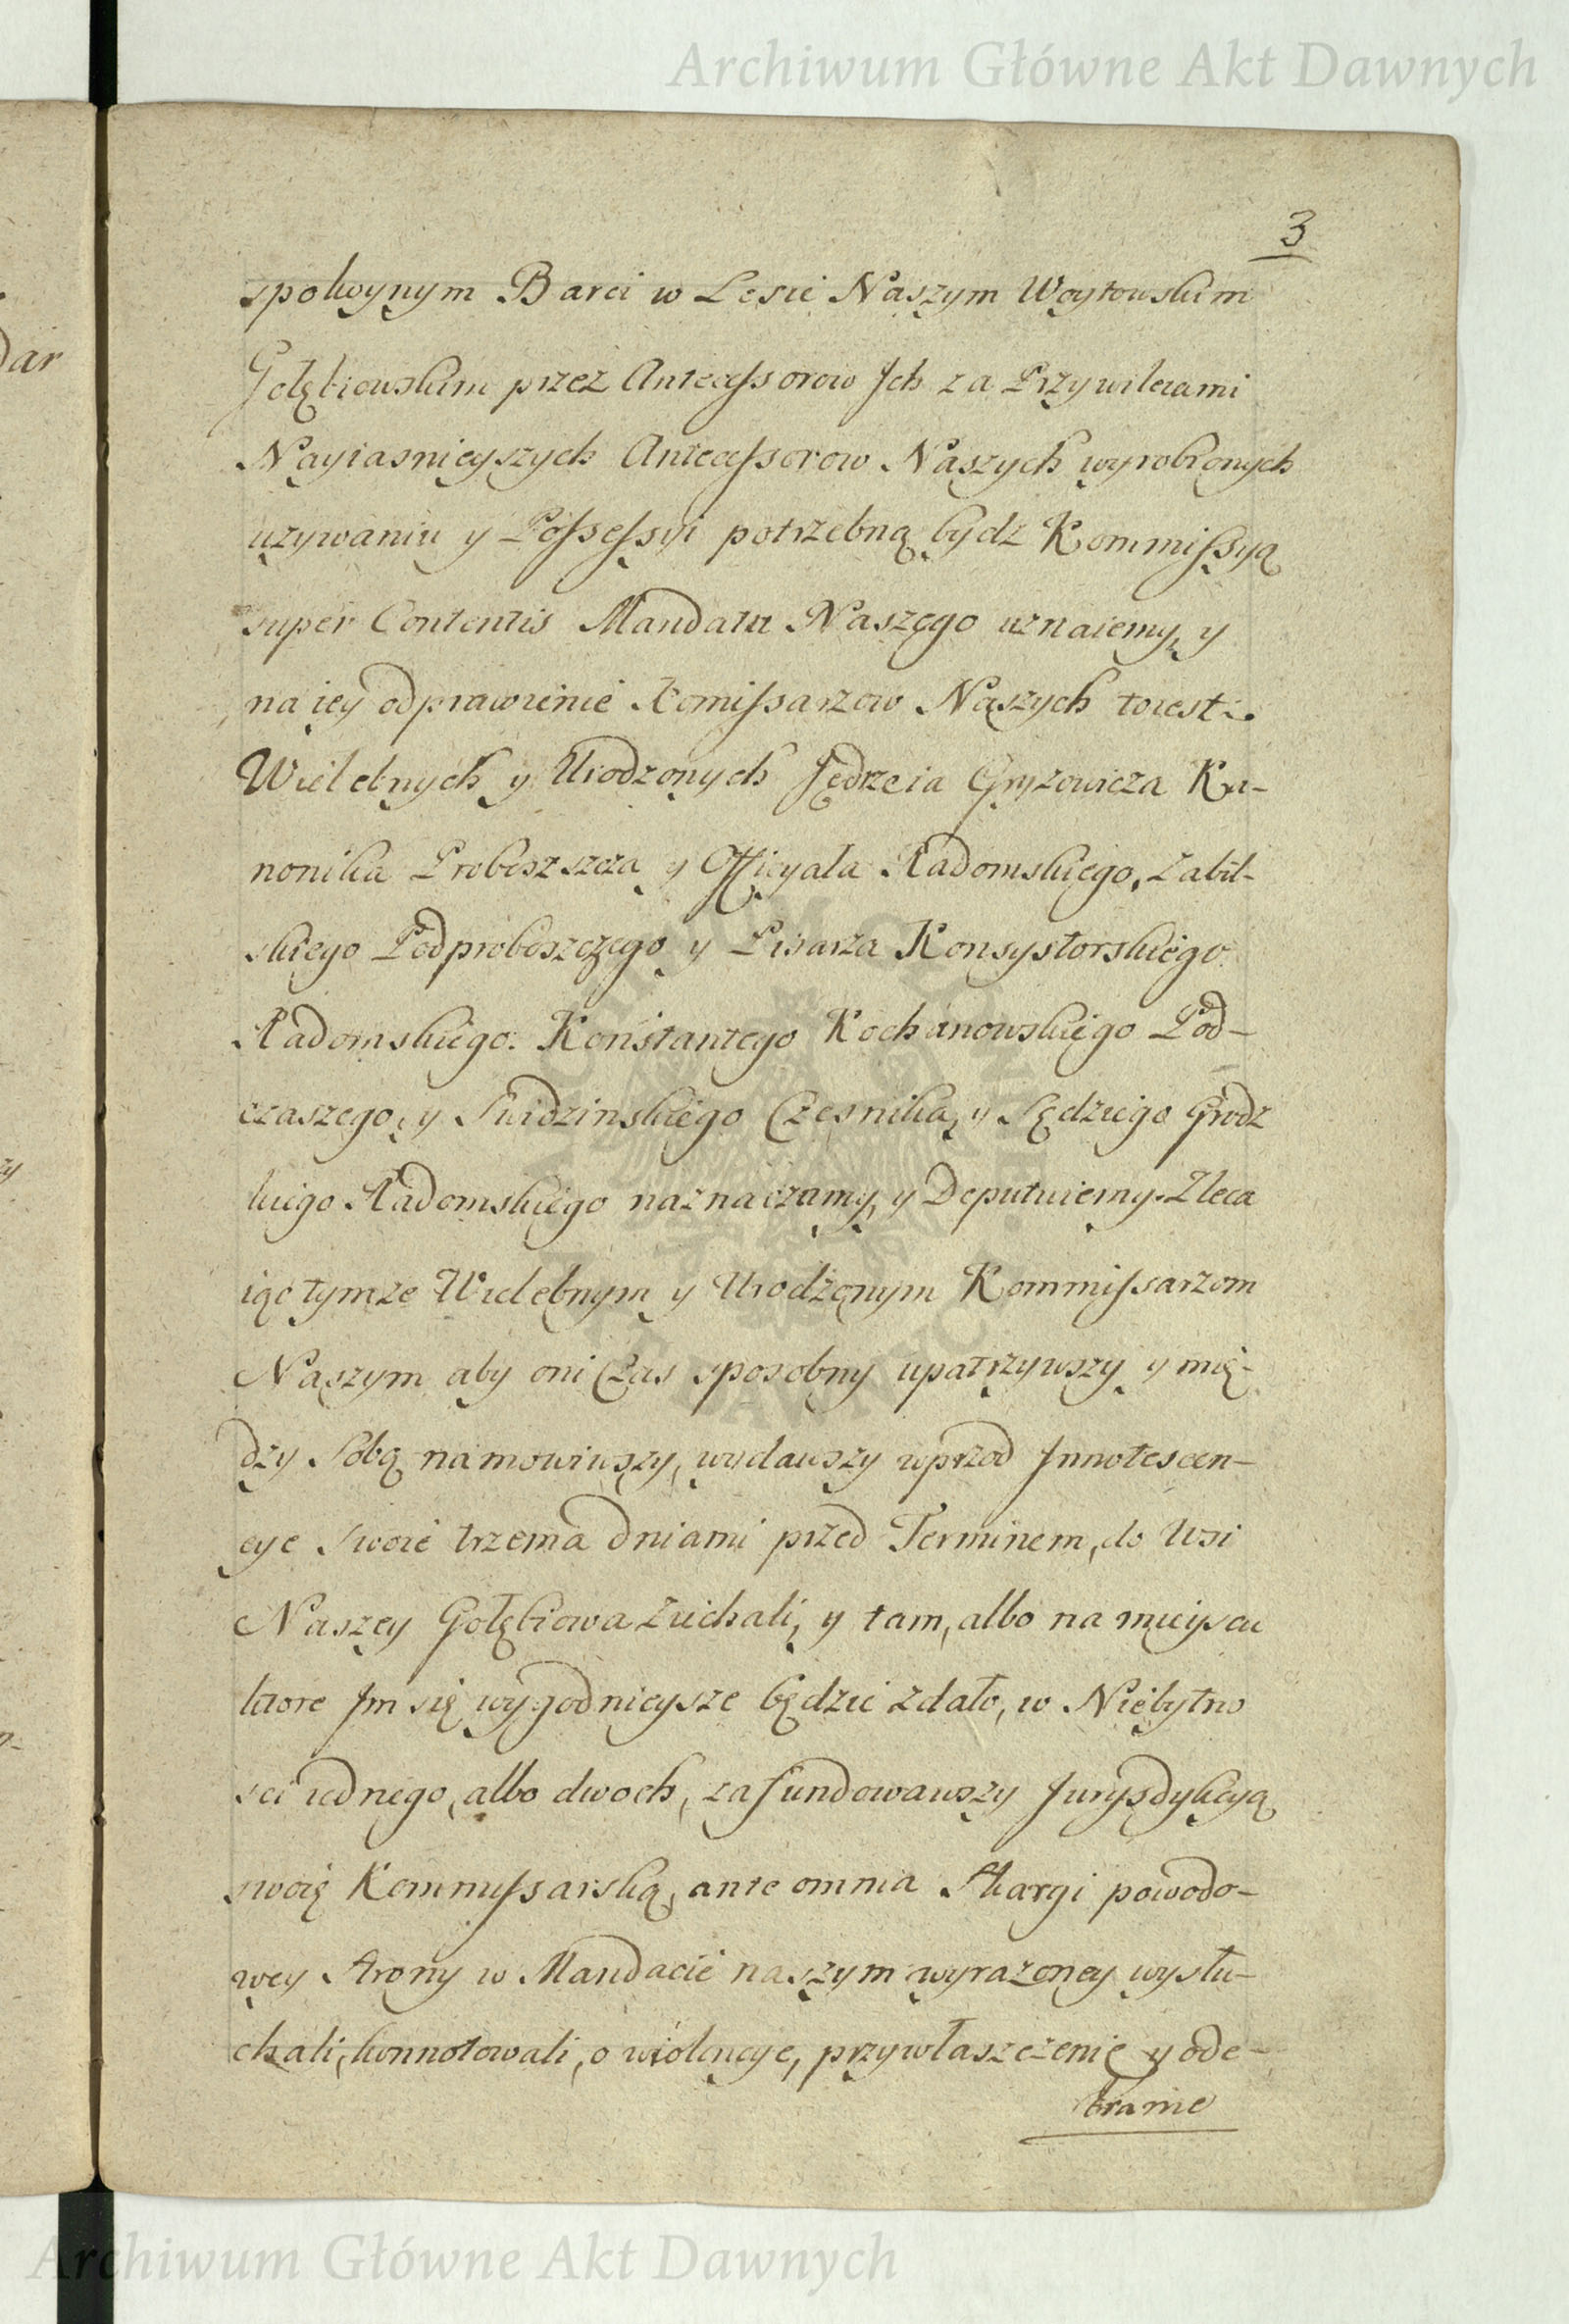 Archiwum Główne Akt Dawnych
3
spokoynym Barci w Lesie Naszym Woytowskim
Gołębiowskim przez Antecessorow Jch za Przywileiami
Nayiasnieyszych Antecessorow Naszych wyrobionych
uzywaniu y Possessyi potrzebną bydz Kommissyą
super Contentis Mandatu Naszego uznaiemy, y
na iey odprawienie Komissarzow Naszych toiest:
Wielebnych y Urodzonych Jędrzeia Gryzowicza Ka-
nonika Proboszszcza y Officyała Radomskiego, Zabil-
skiego Podproboszczego y Pisarza Konsystorskiego
Radomskiego: Konstantego Kochanowskiego Pod-
czaszego, y Swidzinskiego Czesnika, y Sędziego Grodz
kiego Radomskiego naznaczamy, y Deputuiemy. Zleca
iąc tymze Wielebnym y Urodzonym Kommissarzom
Naszym aby oni Czas sposobny upatrzywszy y mię-
dzy Sobą namowiwszy, wydawszy wprzod Jnnotescen-
cye Swoie trzema dniami przed Terminem, do Wsi
Naszey Gołębiowa Ziechali, y tam, albo na mieyscu
ktore Jm się wygodnieysze będzie Zdało, w Niebytno
sci iednego, albo dwoch, zafundowawszy Jurysdykcyą
swoię Kommissarską, ante omnia Skargi powodo-
wey Strony w Mandacie naszym wyrazoney wysłu-
chali, konnotowali, o wiolencye, przywłaszczenie y ode-
branie
dar
Archiwum Główne Akt Dawnych